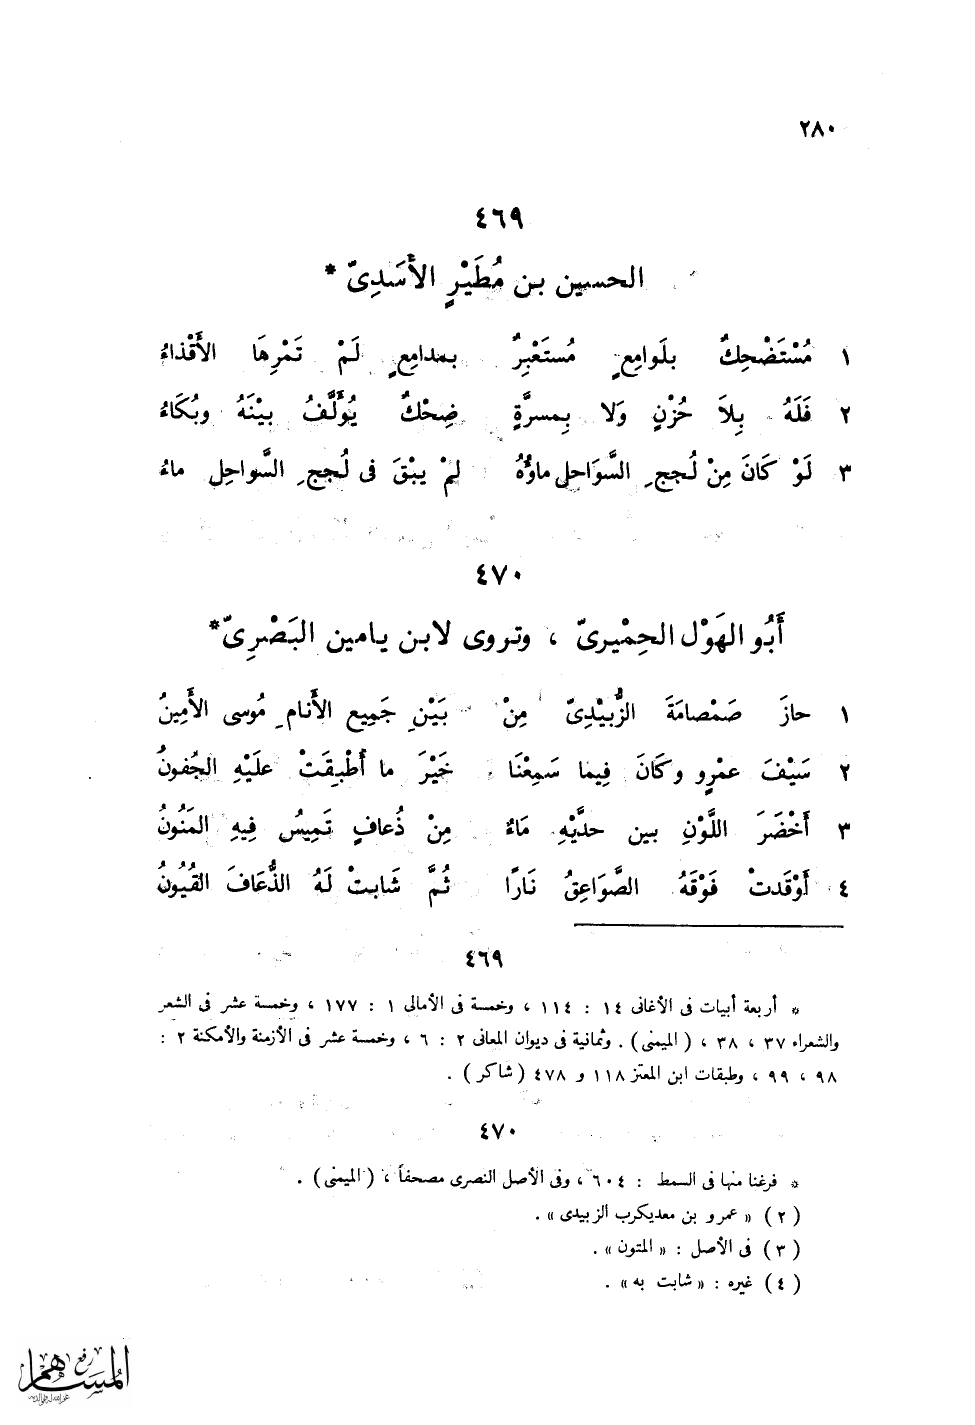 ٢٨٠
٤٦٩
الحسين بن مُطَيْرٍ الأَسَدِىّ *
١ مُسْتَضْحِكٌ بلَوامِعٍ مُستَعْبِرٌ بمدامِعٍ لَمْ تَمْرِهَا الأَقْذاءُ
٢ فَلَهُ بِلاَ حُزْنٍ وَلا بِمسرَّةٍ ضِحْكٌ يُؤَلَّفُ بيْنَهُ وبُكَاءُ
٣ لَوْ كَانَ مِنْ لُججِ السَّوَاحلِ ماؤُهُ لمْ يبْقَ فى لُججِ السَّواحِلِ ماءُ
٤٧٠
أَبُو الهَوْل الحِمْيرىّ ، وتروى لابن يامين البَصْرِىّ*
١ حازَ صَمْصامَةَ الزُّبيْدِىّ مِنْ بَيْنِ جَمِيع الأَنامِ مُوسى الأَمِينُ
٢ سَيْفَ عمْرٍو وكَانَ فِيما سَمِعْنَا خَيْرَ ما أُطْبِقَتْ علَيْهِ الجُفونُ
٣ أَخْضَرَ اللَّوْنِ بين حدَّيْهِ مَاءٌ مِنْ ذُعافٍ تَمِيسُ فِيهِ المَنُونُ
٤ أَوْقَدتْ فَوْقَهُ الصَّوَاعِقُ نَارًا ثُمَّ شَابتْ لَهُ الذُّعَافَ القُيُونُ
٤٦٩
* أربعة أبيات فى الأغانى ١٤ : ١١٤ ، وخمسة فى الأمالى ١ : ١٧٧ ، وخمسة عشر فى الشعر
والشعراء ٣٧ ، ٣٨ ، ( الميمنى ) . وثمانية فى ديوان المعانى ٢ : ٦ ، وخمسة عشر فى الأزمنة والأمكنة ٢ :
٩٨ ، ٩٩ ، وطبقات ابن المعتز ١١٨ و ٤٧٨ ( شاكر ) .
٤٧٠
* فرغنا منها فى السمط : ٦٠٤ ، وفى الأصل النصرى مصحفاً ، ( الميمنى ) .
( ٢ ) « عمرو بن معديكرب الزبيدى » .
( ٣ ) فى الأصل : « المتون » .
( ٤ ) غيره : « شابت به » .